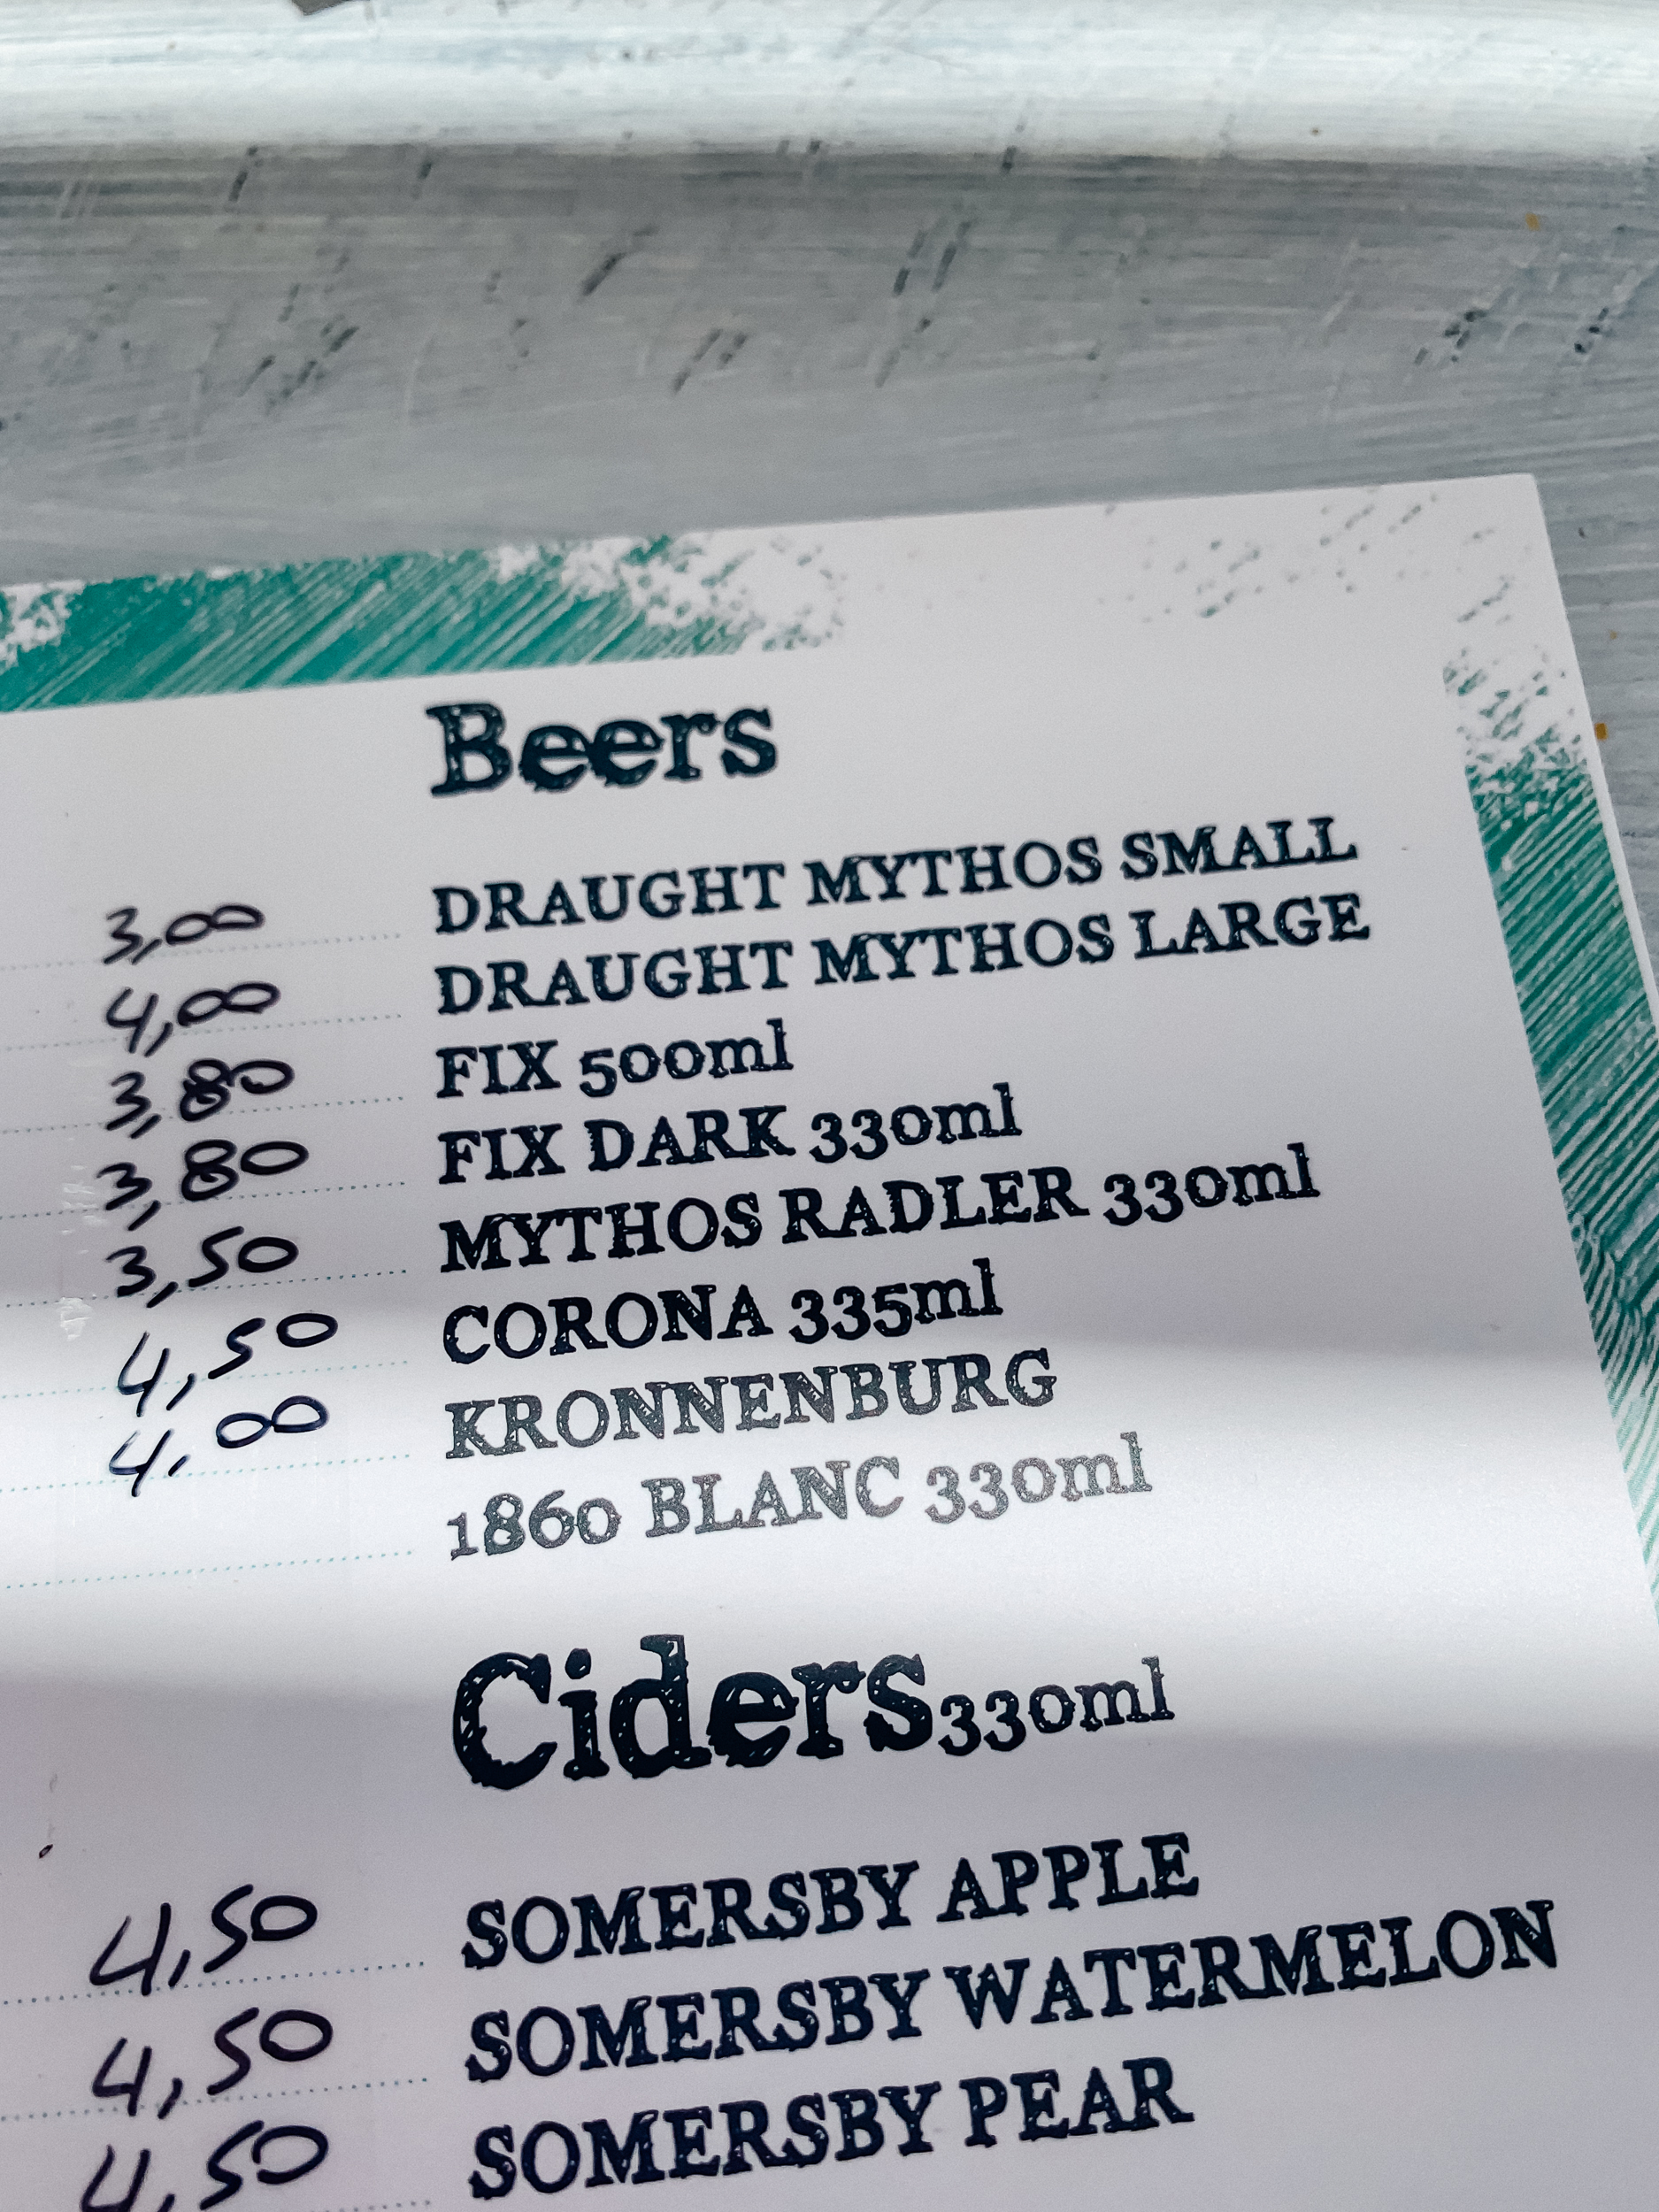 Beers
3,00 DRAUGHT MYTHOS SMALL
4,00 DRAUGHT MYTHOS LARGE
3,80 FIX 500ml
3,80 FIX DARK 330ml
3,50 MYTHOS RADLER 330ml
4,50 CORONA 335ml
4,00 KRONNENBURG
1860 BLANC 330ml
Ciders 330ml
4,50 SOMERSBY APPLE
4,50 SOMERSBY WATERMELON
4,50 SOMERSBY PEAR